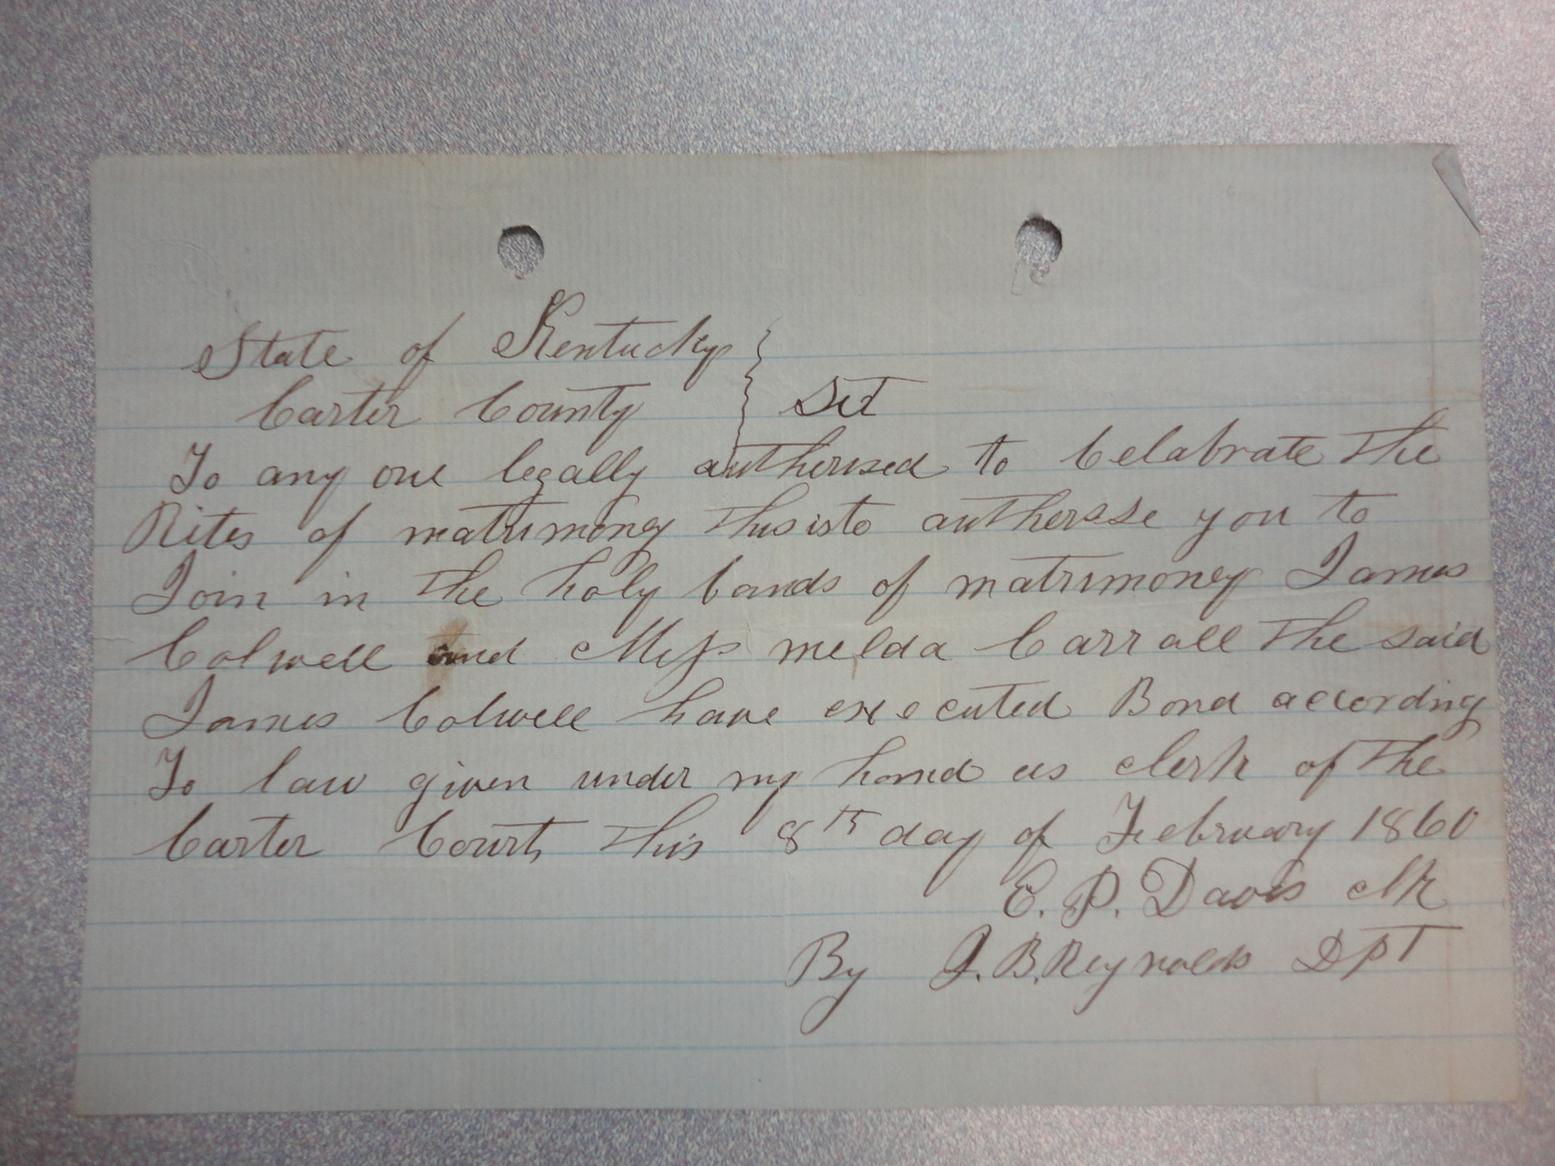 State of Kentucky }
Carter County } Sct
To any one legally authorised to Celabrate the
Rites of matrimoney this is to authorise you to
Join in the holy bands of matrimoney James
Colwell and Miss melda Carrall the said
James Colwell have executed Bond according
To law given under my hand as clerk of the
Carter Court this 8th day of February 1860
E. P. Davis clk
By J. B. Reynolds DPT